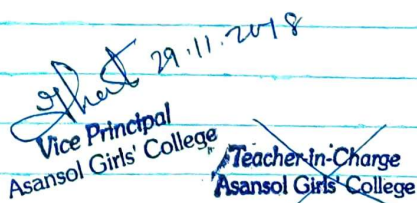 29.11.2018
Vice Principal
Asansol Girls' College
Teacher-in-Charge
Asansol Girls' College